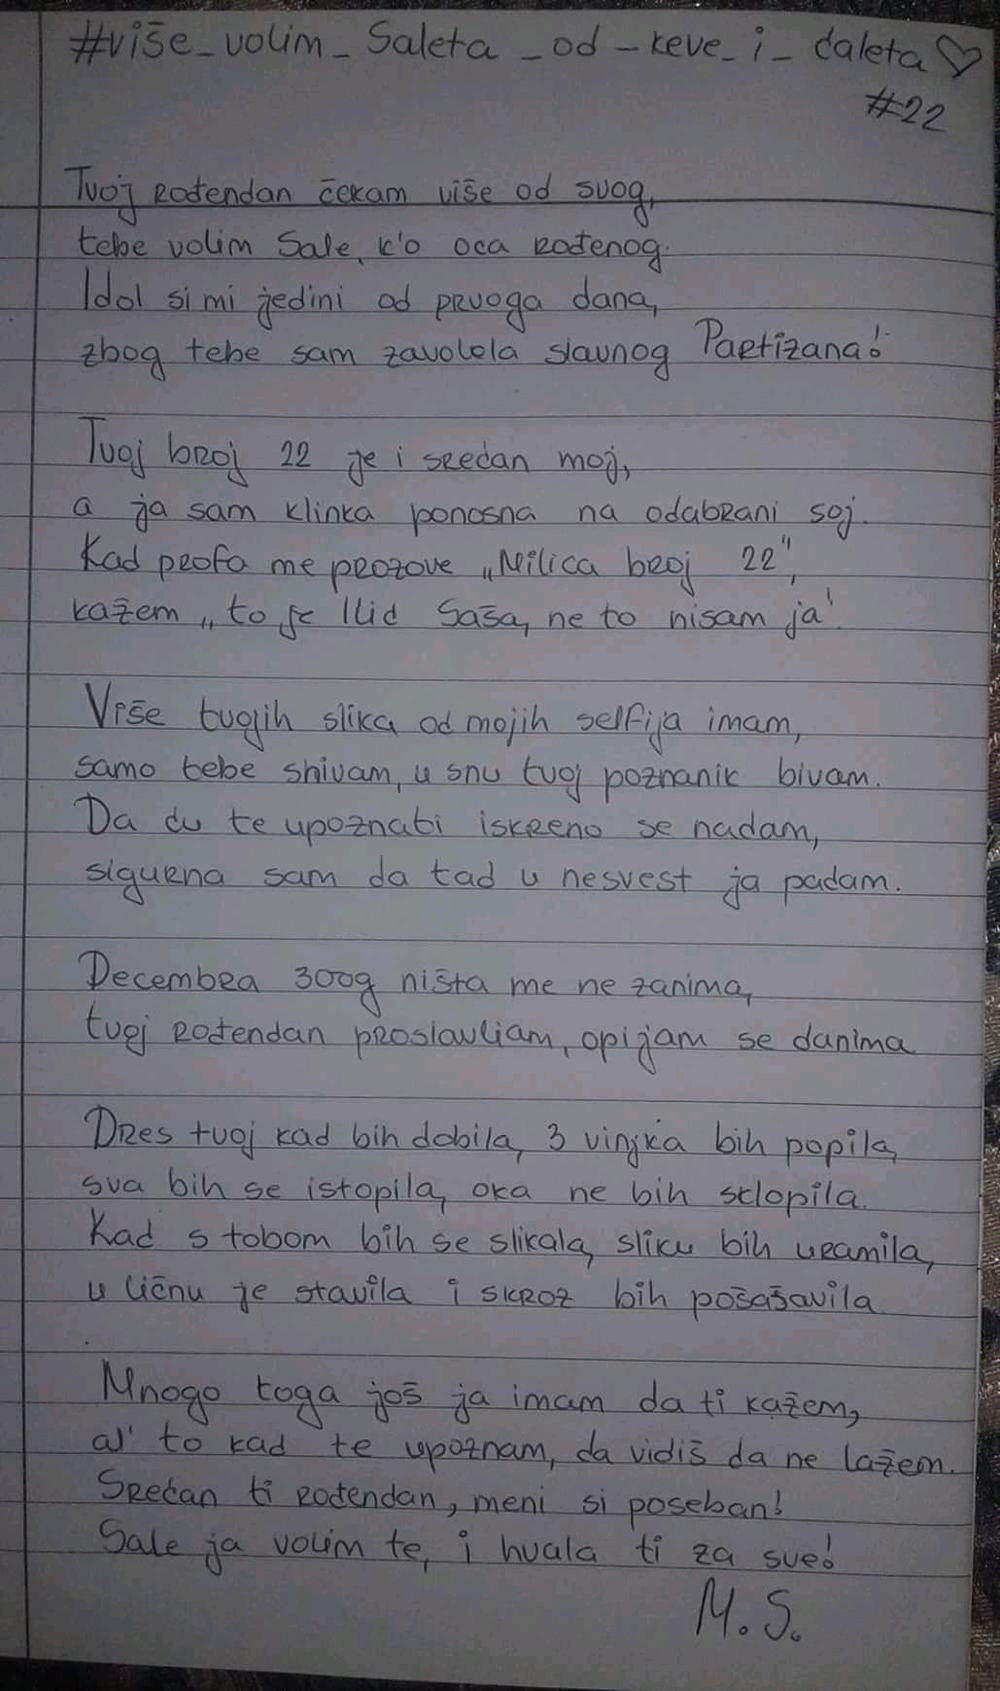 #više_volim_Saleta_od_keve_i_ćaleta♡
#22
Tvoj rođendan čekam više od svog,
tebe volim Sale, k'o oca rođenog.
Idol si mi jedini od prvoga dana,
zbog tebe sam zavolela slavnog Partizana!
Tvoj broj 22 je i srećan moj,
a ja sam klinka ponosna na odabrani soj.
Kad profa me prozove „Milica broj 22",
kažem „to je Ilić Saša, ne to nisam ja".
Više tvojih slika od mojih selfija imam,
samo tebe snivam, u snu tvoj poznanik bivam.
Da ću te upoznati iskreno se nadam,
sigurna sam da tad u nesvest ja padam.
Decembra 30og ništa me ne zanima,
tvoj rođendan proslavljam, opijam se danima
Dres tvoj kad bih dobila, 3 vinjka bih popila,
sva bih se istopila, oka ne bih sklopila.
Kad s tobom bih se slikala, sliku bih uramila,
u ličnu je stavila i skroz bih pošašavila
Mnogo toga još ja imam da ti kažem,
al' to kad te upoznam, da vidiš da ne lažem.
Srećan ti rođendan, meni si poseban!
Sale ja volim te, i hvala ti za sve!
M.S.